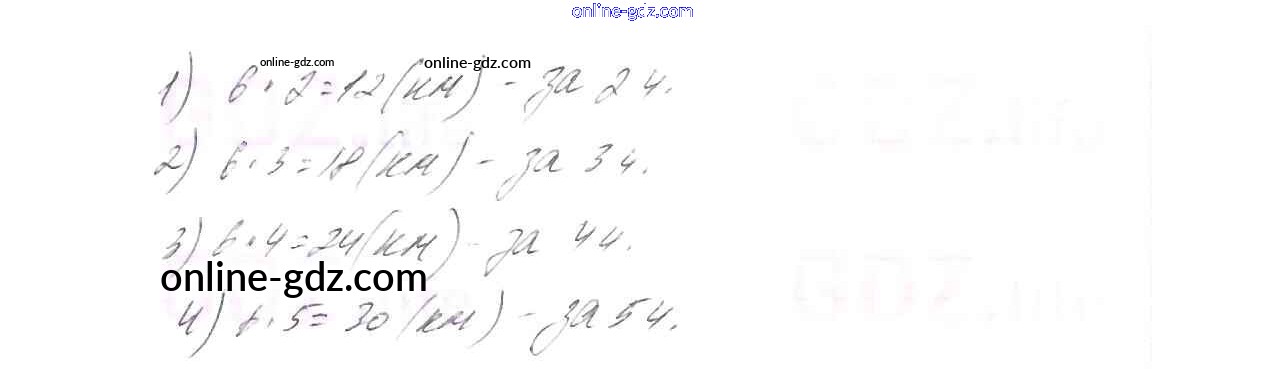 online-gdz.com
online-gdz.com
online-gdz.com
1) 6 · 2 = 12 (км) - за 2 ч.
2) 6 · 3 = 18 (км) - за 3 ч.
3) 6 · 4 = 24 (км) - за 4 ч.
online-gdz.com
4) 6 · 5 = 30 (км) - за 5 ч.